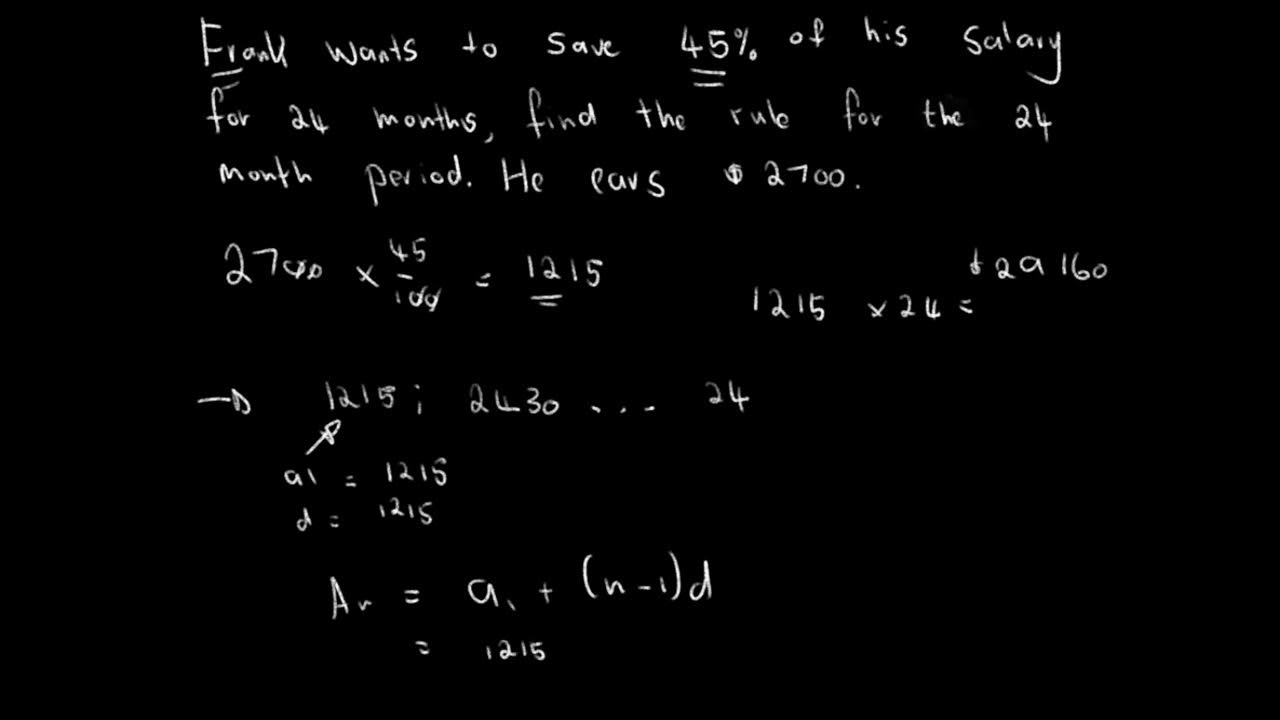 Frank wants to save 45% of his salary
for 24 months, find the rule for the 24
month period. He ears $ 2700.
2700 × 45/100 = 1215
$ 29 160
1215 × 24 =
→ 1215; 2430 ... 24
a1 = 1215
d = 1215
An = a1 + (n-1)d
= 1215